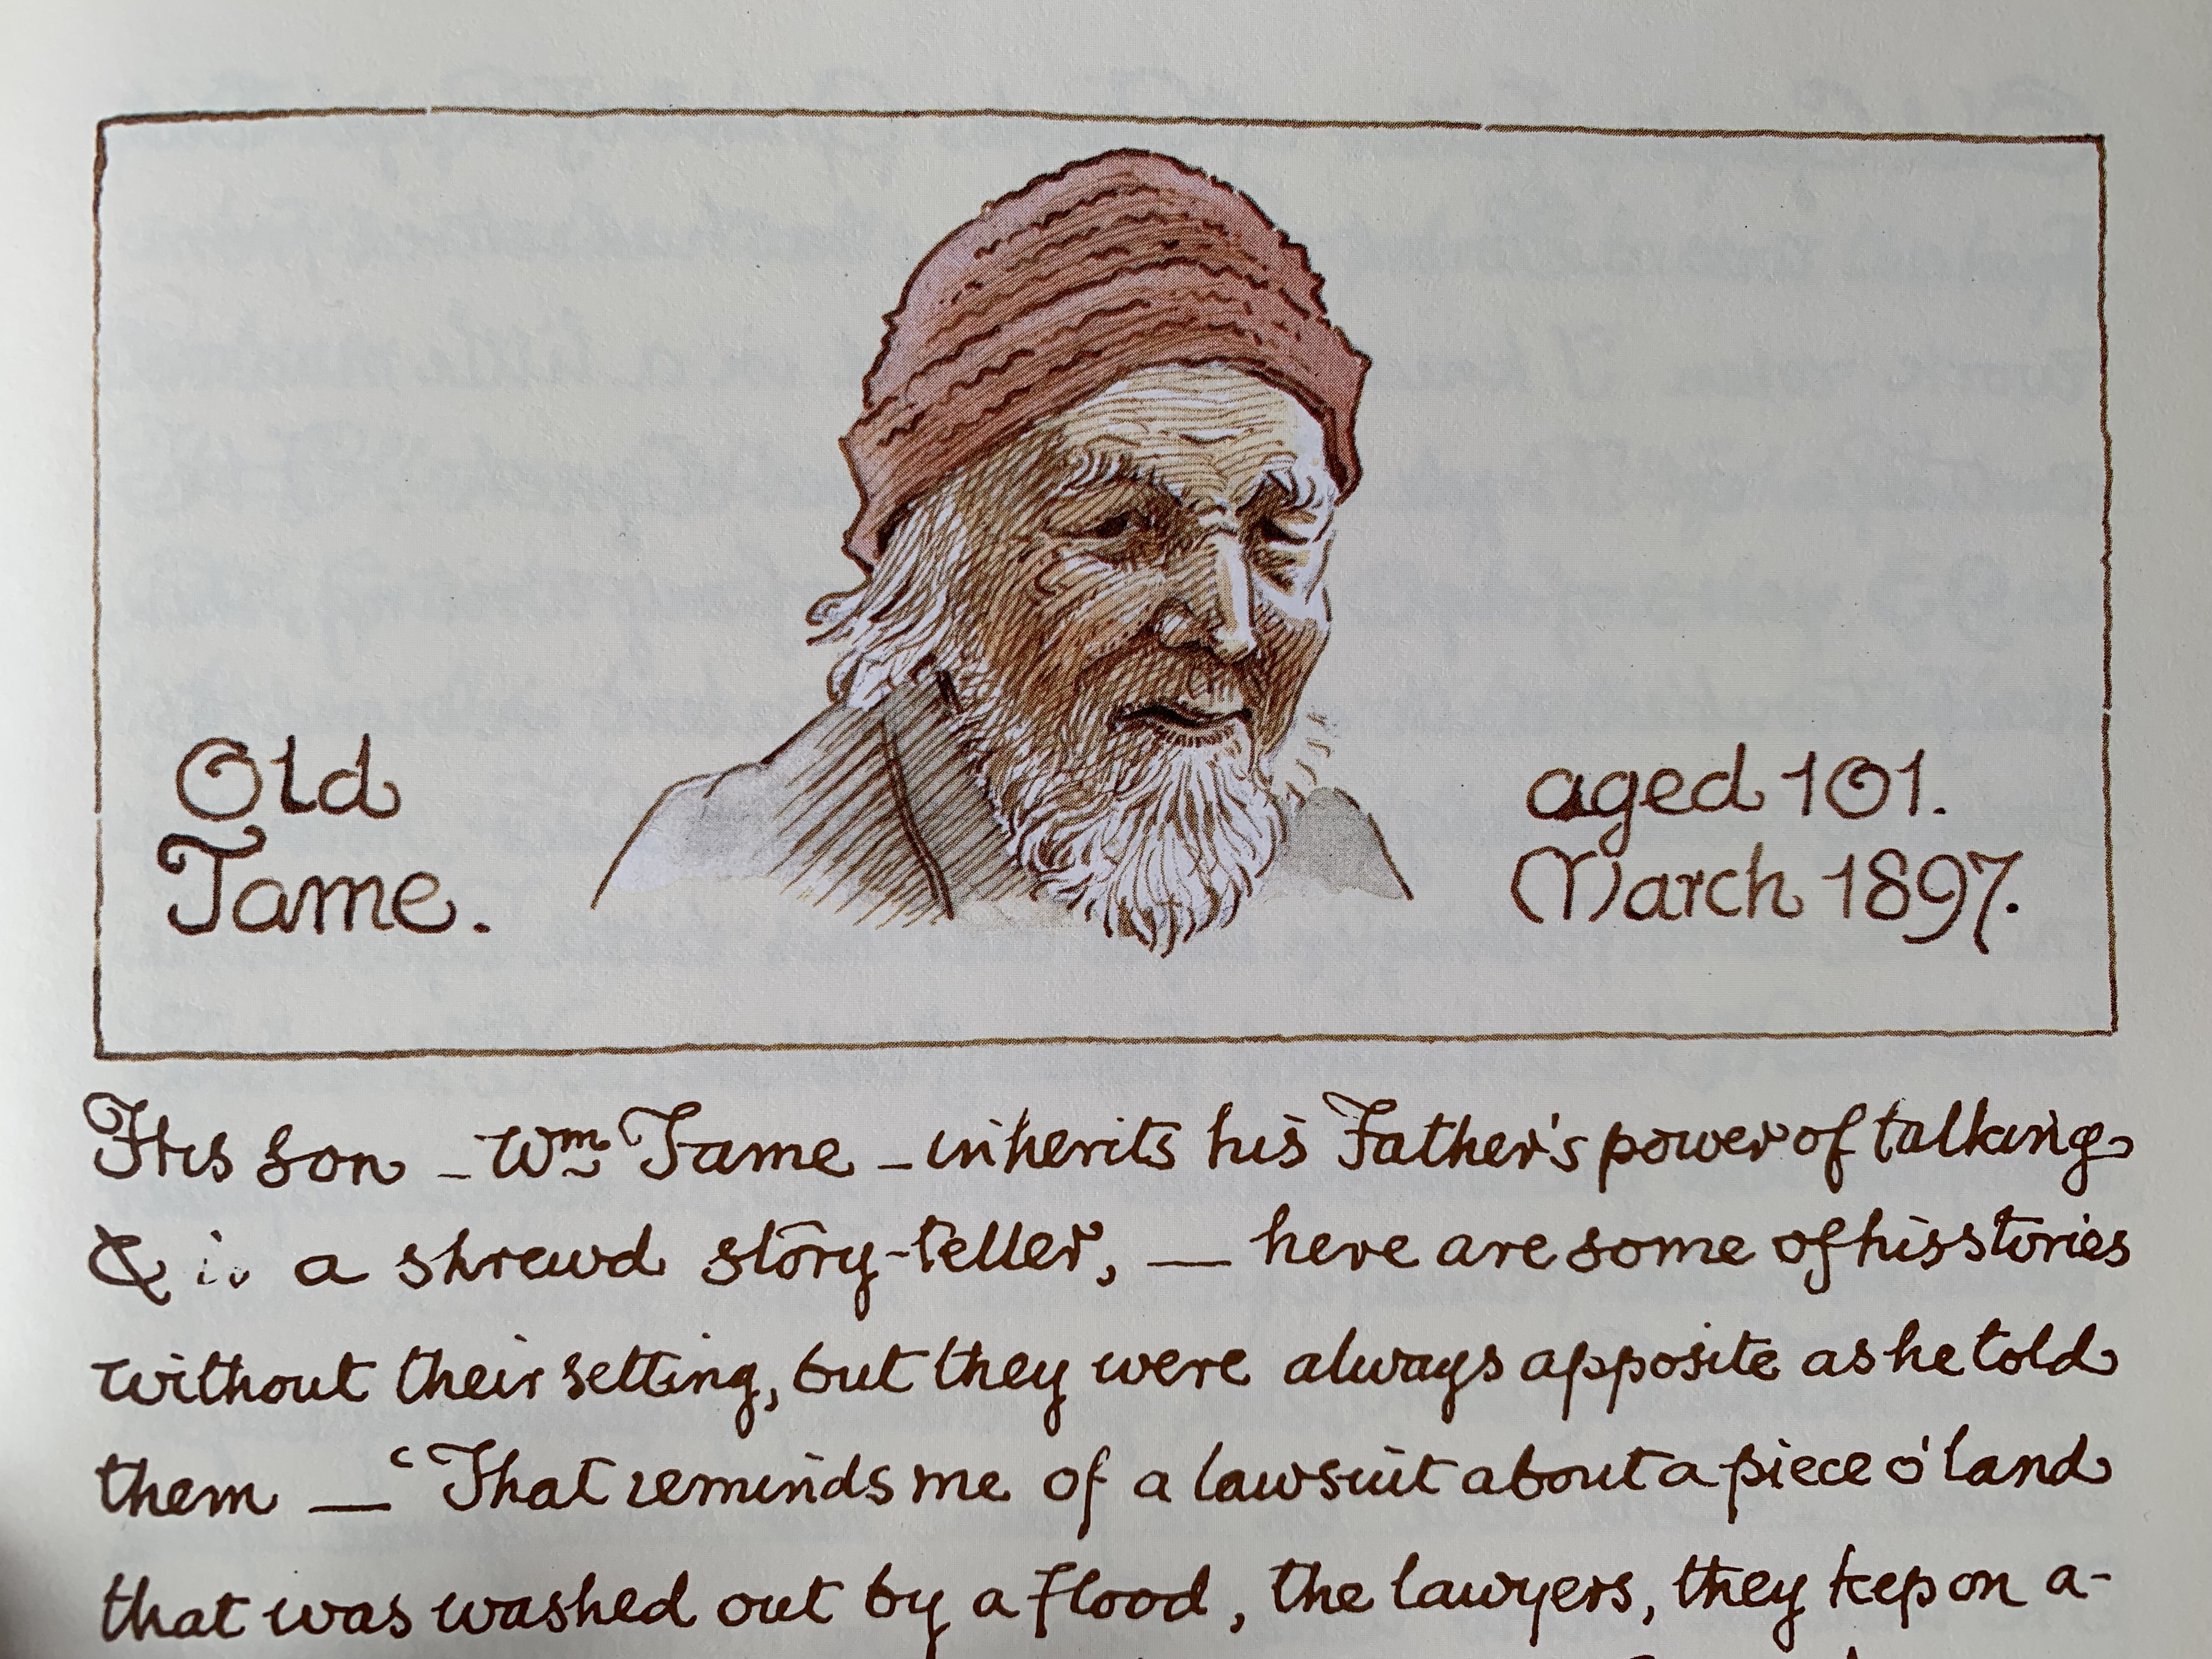 Old
Tame.
aged 101.
March 1897.
His son – Wm Tame – inherits his Father's power of talking
& is a shrewd story-teller, — here are some of his stories
without their setting, but they were always apposite as he told
them — ‘That reminds me of a lawsuit about a piece o' land
that was washed out by a flood, the lawyers, they kep on a-